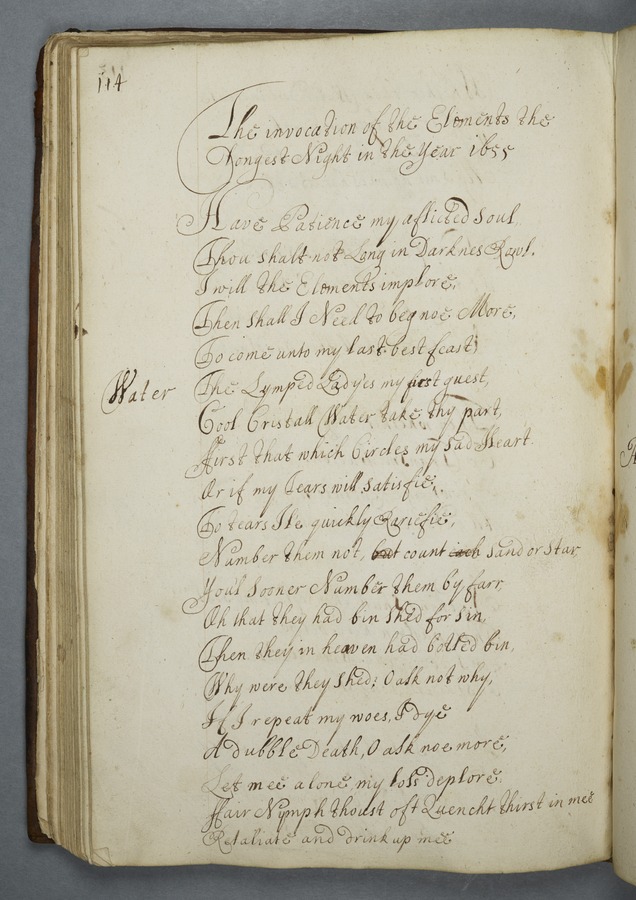 114
The invocation of the Elements the
Longest Night in the Year 1655
Have Patience my aflicted Soul
Thou shalt not Long in Darknes Rowl.
I will the Elements implore,
Then shall I Need to beg noe More,
To come unto my last best feast
Water The Lymped Ladyes my first guest,
Cool Cristall Water take thy part,
First that which Circles my Sad Heart.
Or if my Tears will Satisfie,
To tears Ile quickly Rariefie,
Number them not, but count each Sand or Star,
Youl Sooner Number them by farr,
Oh that they had bin shed for sin,
Then they in heaven had botled bin,
Why were they shed; O ask not why,
If I repeat my woes, I dye
A dubble Death, O ask noe more,
Let mee alone my loss deplore.
Fair Nymph thoust oft Quencht thirst in mee
Retaliate and drink up mee